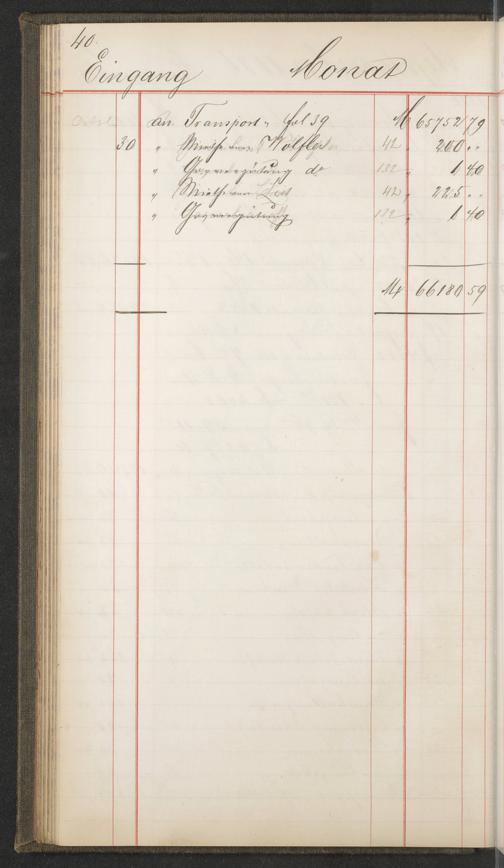 40.
Eingang Monat
An Transport " fol 39 M 65752 79
30 " Miethe von Wolfles 42 " 200 "
" Gasvergütung do 132 " 1 40
" Miethe von 42 " 225 "
" Gasvergütung 132 " 1 40
Mk 66180 59